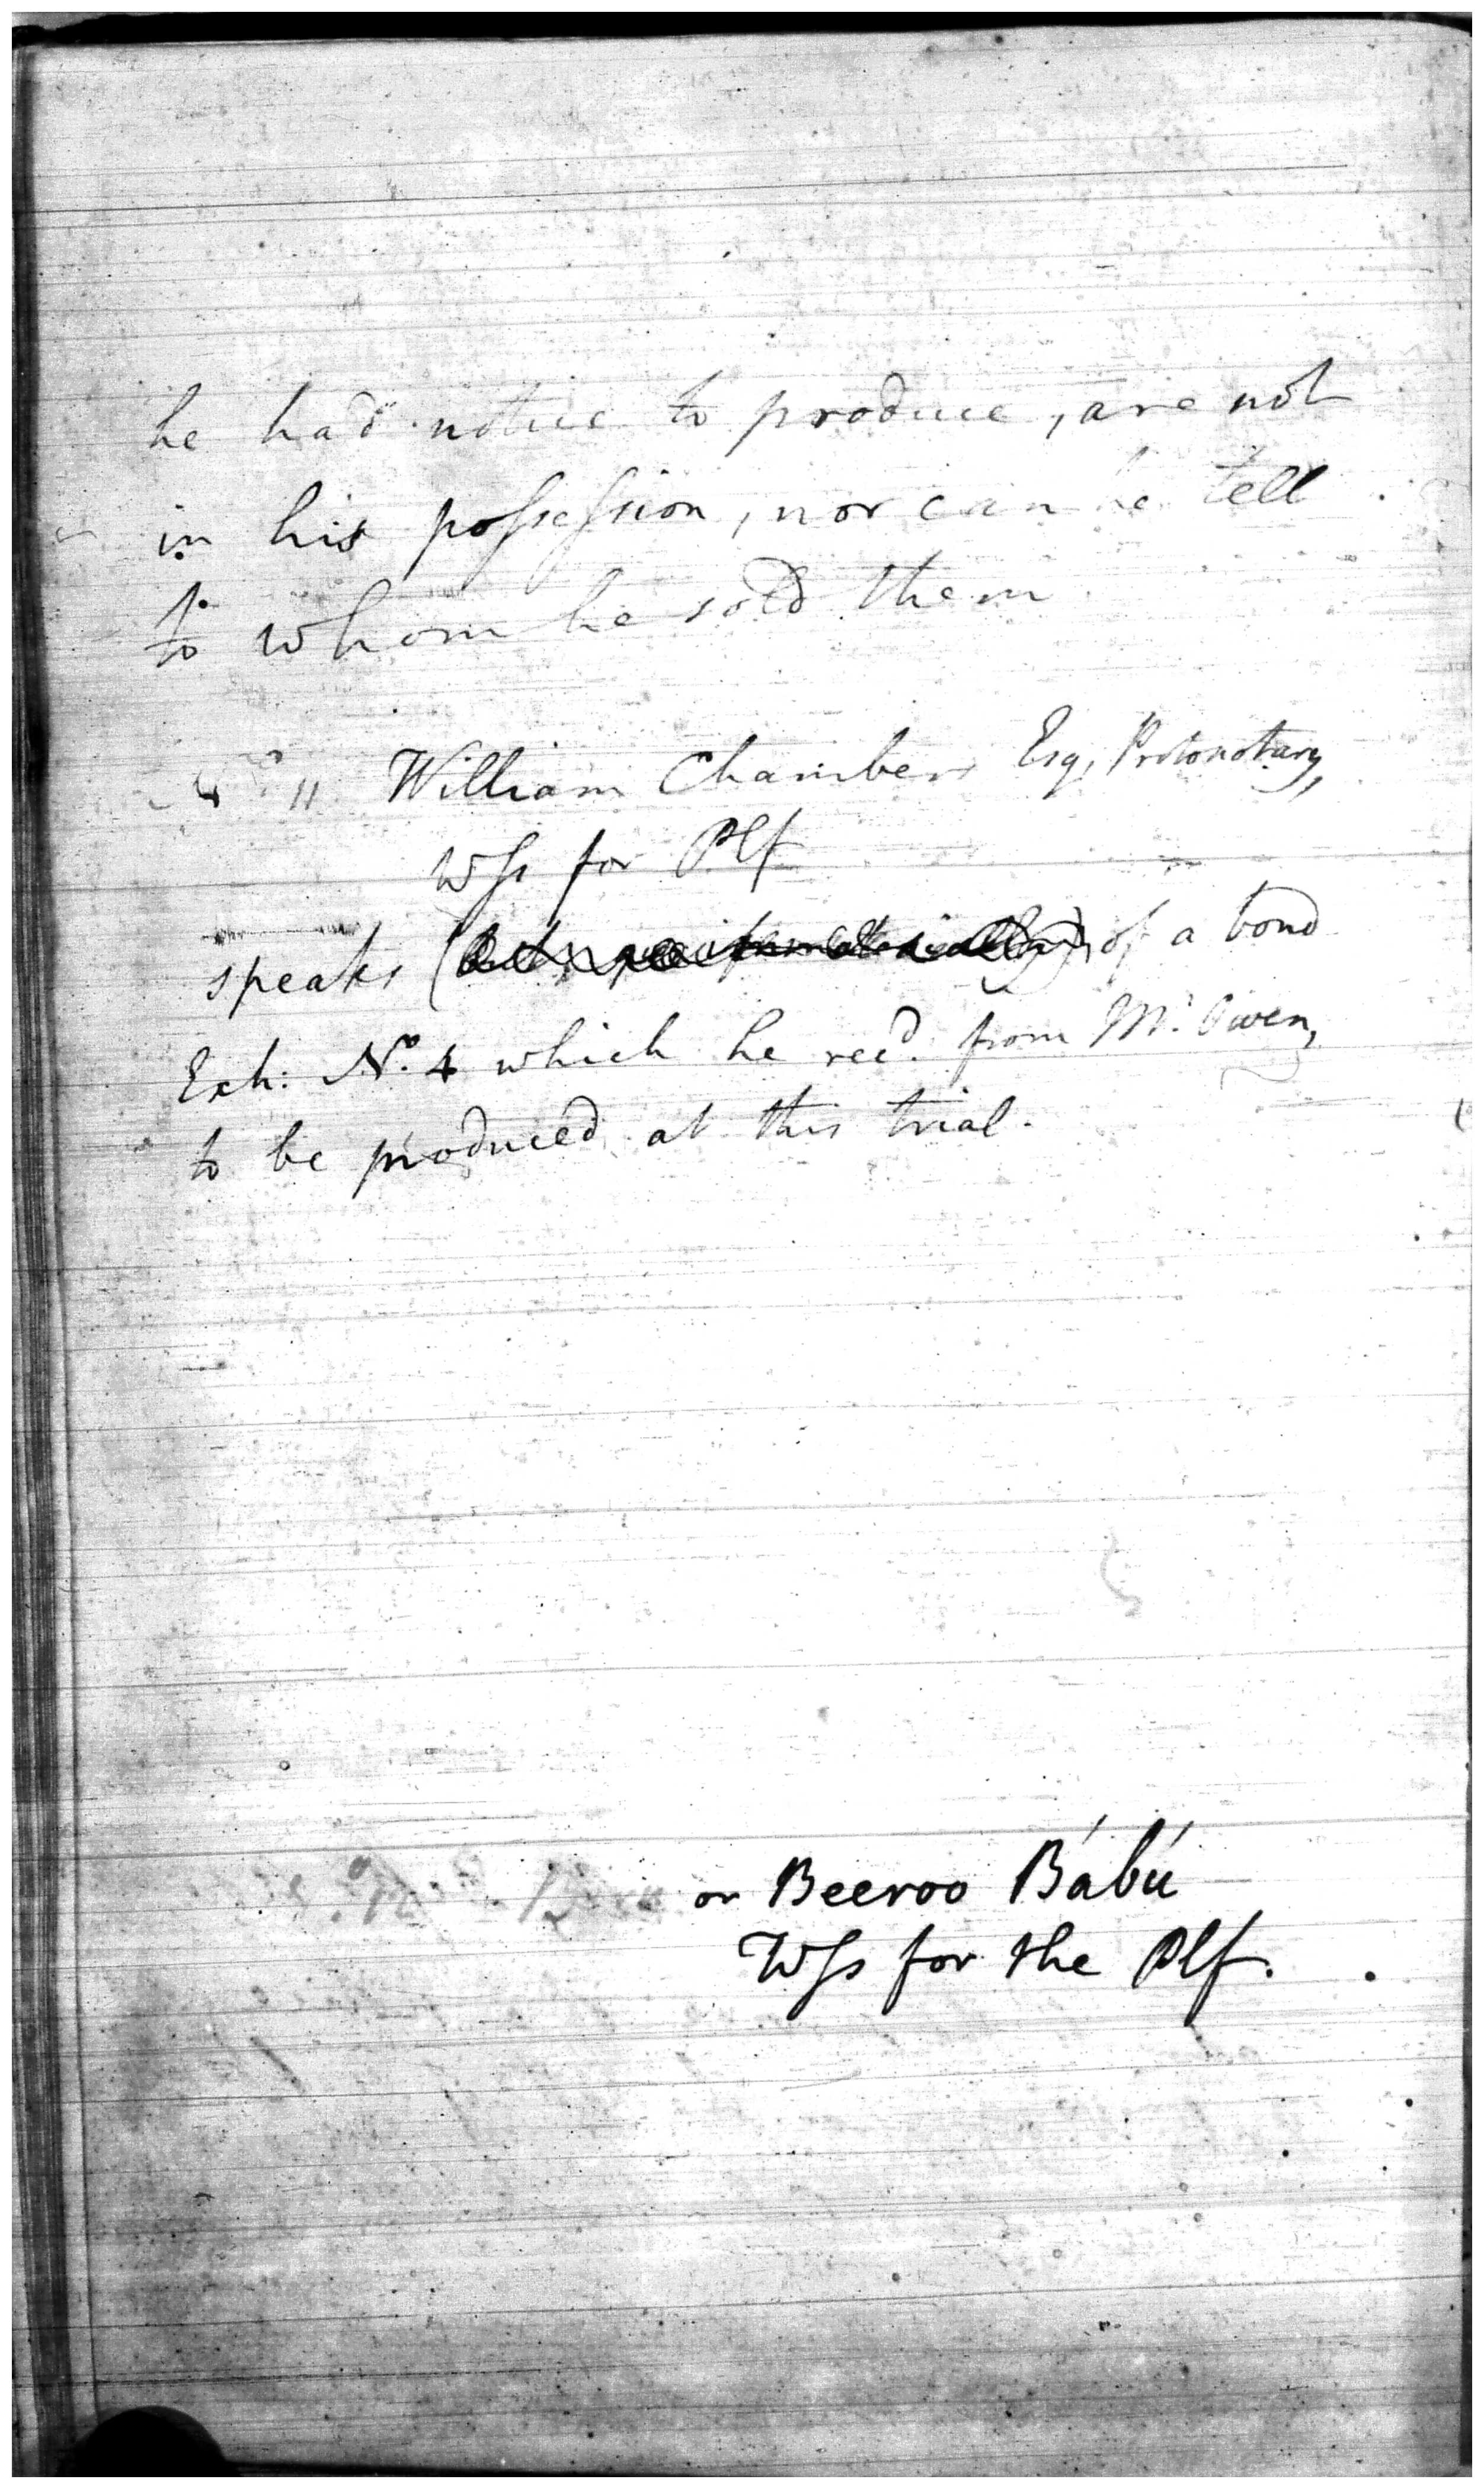 he had notice to produce, are not
in his possession, nor can he tell
to whom he sold them
11 William Chambers Esq, Protonotary,
Wss for Plf
speaks of a bond
Exh: No. 4 which he recd. from Mr. Owen,
to be produced at this trial.
or Beeroo Bábú
Wss for the Plf.